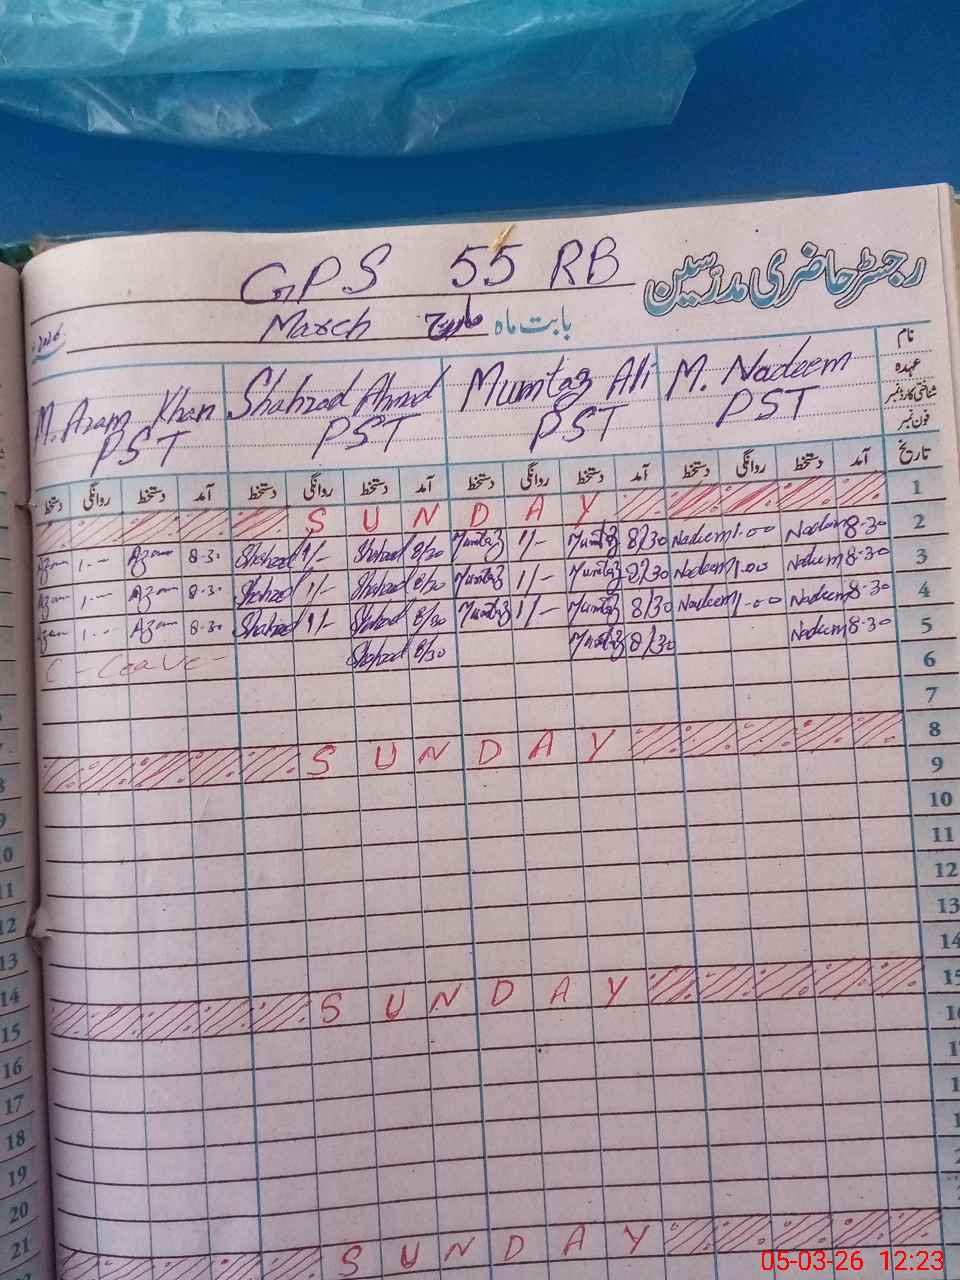 GPS 55 RB رجسٹر حاضری مدرّسین
2026 March مارچ بابت ماہ
نام
عہدہ
شناختی کارڈ نمبر
فون نمبر
M. Azam Khan Shahzad Ahmad Mumtaz Ali M. Nadeem
PST PST PST PST
دستخط روانگی دستخط آمد دستخط روانگی دستخط آمد دستخط روانگی دستخط آمد دستخط روانگی دستخط آمد تاریخ
SUNDAY 1
Azam 1.-- Azam 8-30 Shahzad 1/- Shahzad 8/30 Mumtaz 1/- Mumtaz 8/30 Nadeem 1.00 Nadeem 8-30 2
Azam 1.-- Azam 8-30 Shahzad 1/- Shahzad 8/30 Mumtaz 1/- Mumtaz 8/30 Nadeem 1.00 Nadeem 8-30 3
Azam 1.-- Azam 8-30 Shahzad 1/- Shahzad 8/30 Mumtaz 1/- Mumtaz 8/30 Nadeem 1-00 Nadeem 8-30 4
C - Leave - Shahzad 8/30 Mumtaz 8/30 Nadeem 8-30 5
6
7
SUNDAY 8
9
10
11
12
13
14
SUNDAY 15
9
10
11
12
13
14
15
16
17
18
19
20
21
SUNDAY
05-03-26 12:23